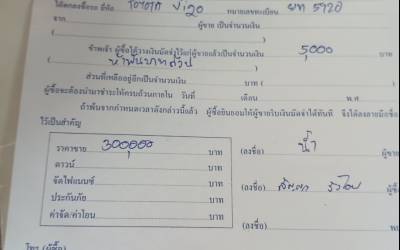 ได้ตกลงซื้อรถ ยี่ห้อ TOYOTA Vigo หมายเลขทะเบียน 5920
จาก ผู้ขาย เป็นจำนวนเงิน
ข้าพเจ้า ผู้ซื้อได้วางเงินมัดจำไว้แก่ผู้ขายแล้วเป็นจำนวนเงิน 5,000
( ห้าพันบาทถ้วน )
ส่วนที่เหลืออยู่อีกเป็นจำนวนเงิน บาท (
ผู้ซื้อจะต้องนำมาชำระให้ครบถ้วนภายใน วันที่ เดือน พ.ศ
ถ้าพ้นจากกำหนดเวลาดังกล่าวนี้แล้ว ผู้ซื้อยินยอมให้ผู้ขายริบเงินมัดจำได้ทันที จึงได้ลงลายมือชื่อ
ไว้เป็นสำคัญ
ราคาขาย 300,000 บาท (ลงชื่อ) น้ำ ผู้ขาย
ดาวน์ บาท (
จัดไฟแนนซ์ บาท (ลงชื่อ) ผู้ซื้อ
ประกันภัย บาท (
ค่าจัด/ค่าโอน บาท (ลงชื่อ) พ
โทร (ผู้ซื้อ)